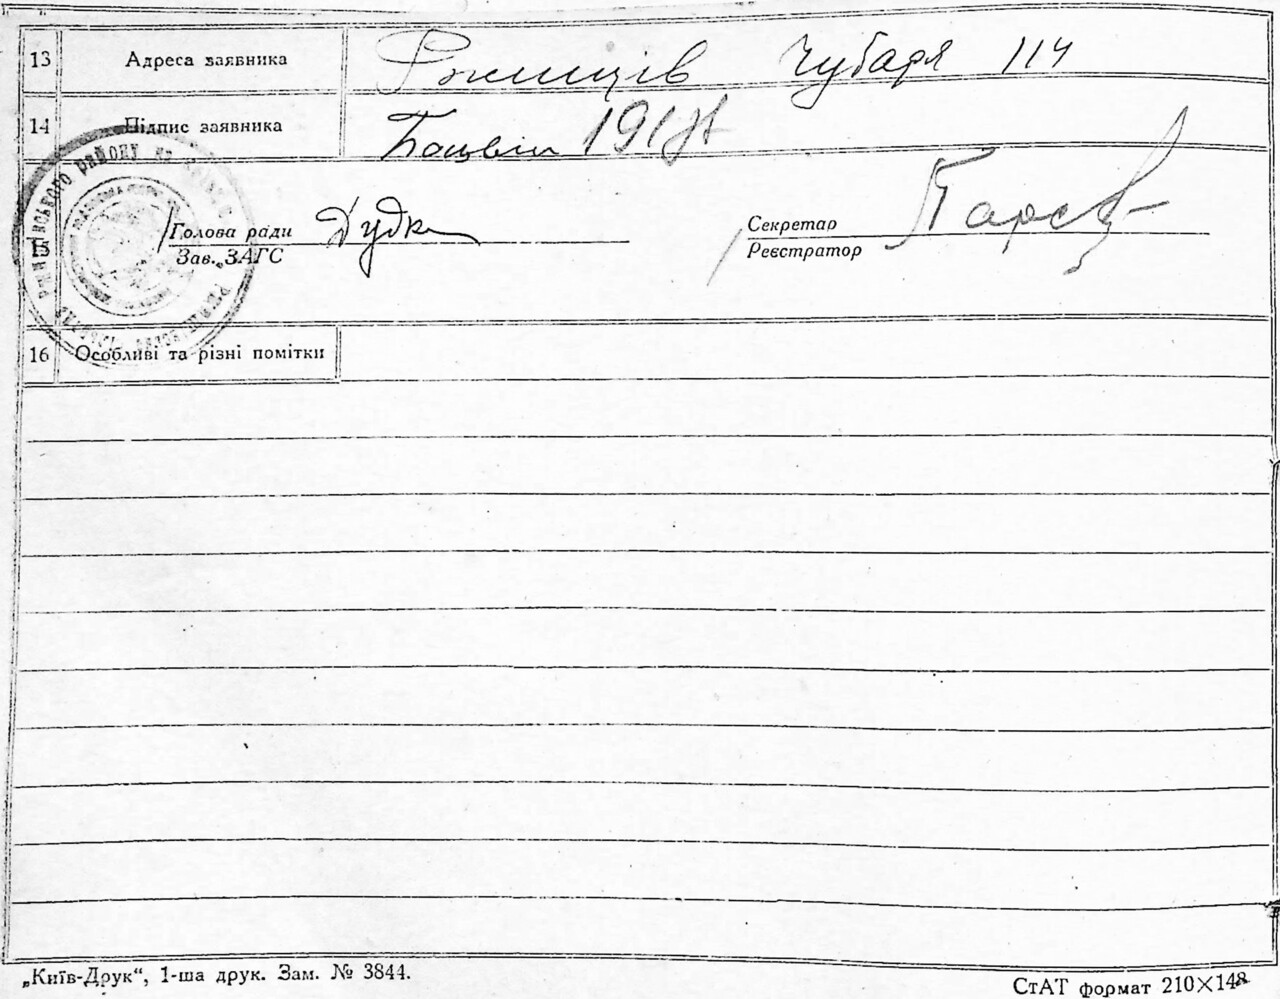 13 Адреса заявника Ржищів Чубаря 114
14 Підпис заявника
РЖИЩІВСЬКОГО РАЙОНУ
15 Голова ради Дудк Секретар
Зав. „ЗАГС Реєстратор
16 Особливі та різні помітки
„Київ-Друк“, 1-ша друк. Зам. № 3844.
СтАТ формат 210×148